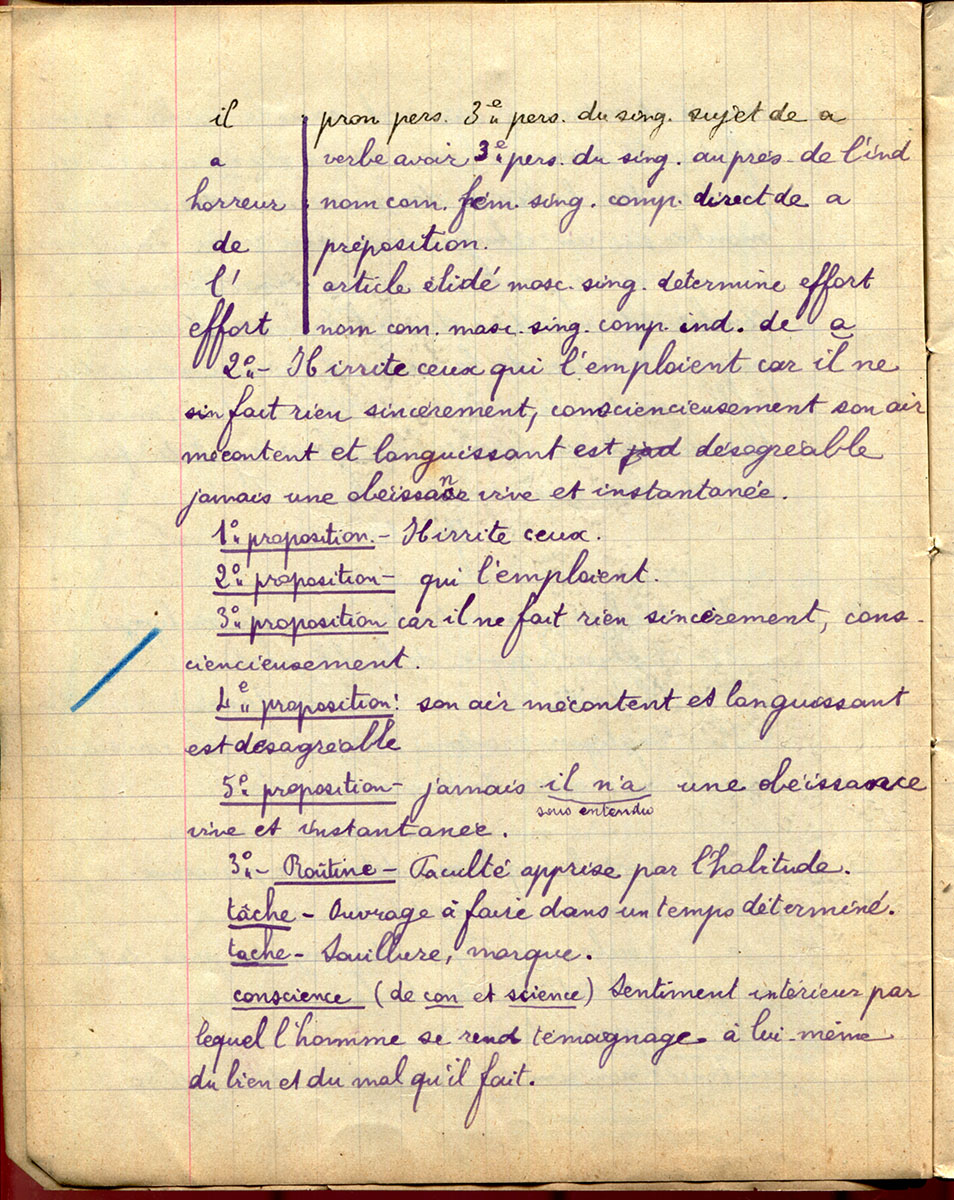 il pron pers. 3e pers. du sing. sujet de a
a verbe avoir 3e pers. du sing. au prés. de l'ind
horreur nom com. fém. sing. comp. direct de a
de préposition.
l' article élidé masc. sing. détermine effort
effort nom com. masc. sing. comp. ind. de a
2o- Il irrite ceux qui l'emploient car il ne
fait rien sincèrement, consciencieusement son air
mécontent et languissant est désagréable
jamais une obéissance vive et instantanée.
1o proposition.- Il irrite ceux.
2o proposition- qui l'emploient.
3o proposition car il ne fait rien sincèrement, cons-
ciencieusement.
4e proposition: son air mécontent et languissant
est désagréable
5e proposition- jamais il n'a une obéissance
sous entendu
vive et instantanée.
3o- Routine- Faculté apprise par l'habitude.
tâche- Ouvrage à faire dans un temps déterminé.
tache- Souillure, marque.
conscience (de con et science) Sentiment intérieur par
lequel l'homme se rend témoignage à lui-même
du bien et du mal qu'il fait.